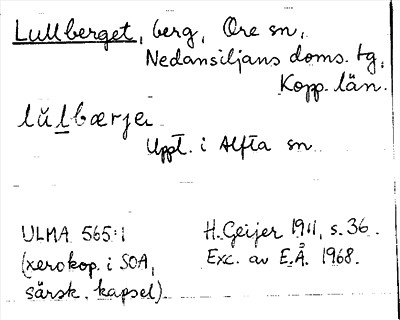 Lullberget, berg, Ore sn,
Nedansiljans doms. tg,
Kopp. län.
lŭlbærje
Uppt. i Alfta sn
ULMA 565:1
(xerokop. i SOA,
särsk. kapsel)
H. Geijer 1911, s. 36.
Exc. av E.Å. 1968.